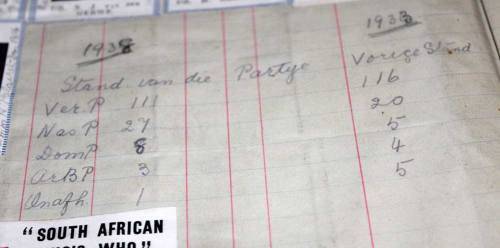 1938 1933
Stand van die Partye Vorige Stand
Ver.P 111 116
Nas.P 27 20
Dom P 8 5
ArBP 3 4
Onafh. 1 5
"SOUTH AFRICAN
WHO"